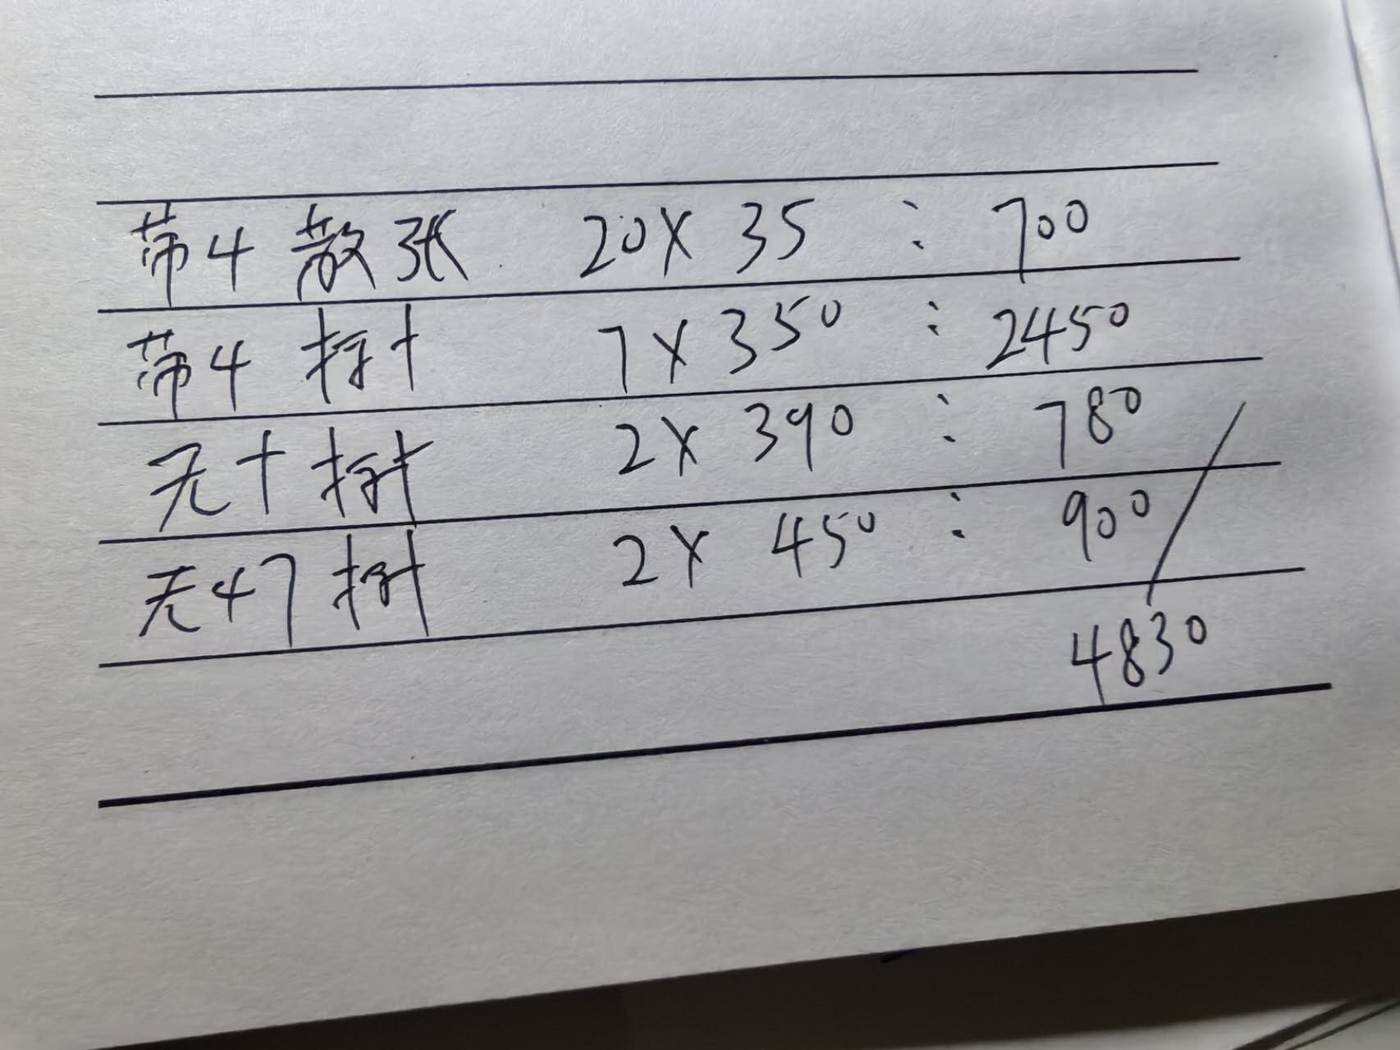 带4 散张 20X 35 : 700
带4 标十 7X350 : 2450
无4 标十 2X 390 : 780
无47 标十 2X 450 : 900
4830